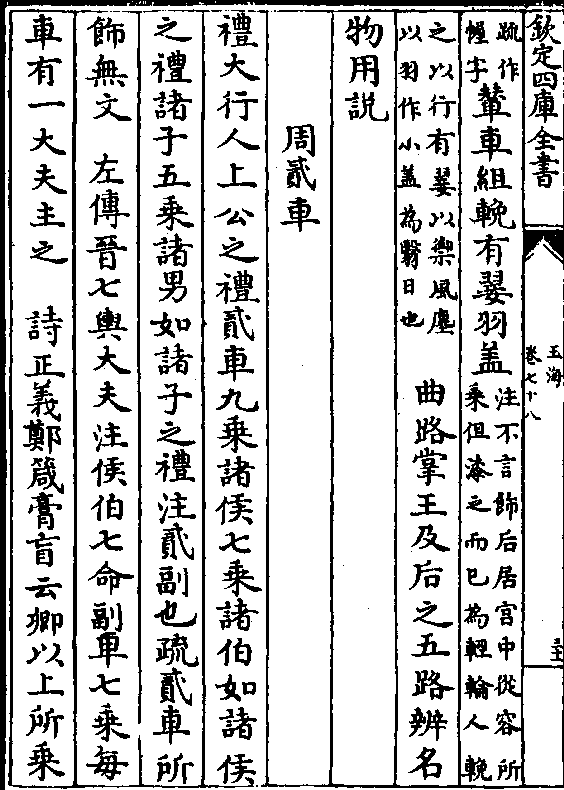 欽定四庫全書
玉海
卷七十八
疏作
幄字
輦車組輓有翣羽盖
注不言飾后居宫中從容所
乘但漆之而已為輇輪人輓
之以行有翣以禦風塵
以羽作小盖為翳日也
曲路掌王及后之五路辨名
物用説
周貳車
禮大行人上公之禮貳車九乘諸侯七乘諸伯如諸侯
之禮諸子五乘諸男如諸子之禮注貳副也疏貳車所
飾無文　左傳晉七輿大夫注侯伯七命副車七乘每
車有一大夫主之　詩正義鄭箴膏盲云卿以上所乘